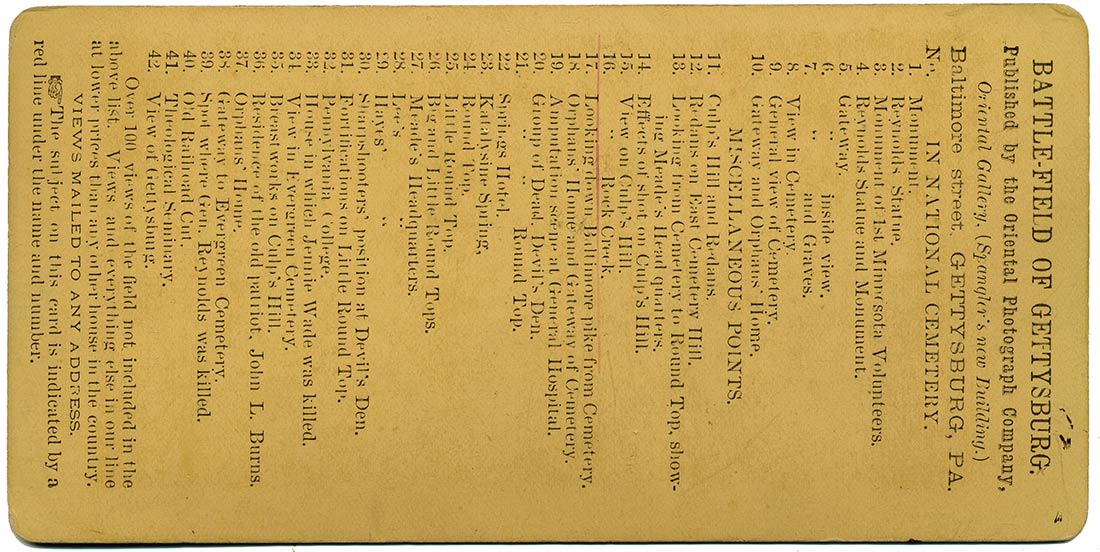 BATTLE-FIELD OF GETTYSBURG.
Published by the Oriental Photograph Company,
Oriental Gallery, (Spangler's new Building.)
Baltimore street, GETTYSBURG, PA.
No. IN NATIONAL CEMETERY.
1. Monument.
2. Reynolds Statue.
3. Monument of 1st Minnesota Volunteers.
4. Reynolds Statue and Monument.
5. Gateway.
6. " inside view.
7. " and Graves.
8. View in Cemetery.
9. General view of Cemetery.
10. Gateway and Orphans' Home.
MISCELLANEOUS POINTS.
11. Culp's Hill and Redans.
12. Redans on East Cemetery Hill.
13. Looking from Cemetery to Round Top, show-
ing Meade's Headquarters.
14. Effects of shot on Culp's Hill.
15. View on Culp's Hill.
16. " Rock Creek.
17. Looking down Baltimore pike from Cemetery.
18. Orphans' Home and Gateway of Cemetery.
19. Amputation scene at General Hospital.
20. Group of Dead, Devil's Den.
21. " " Round Top.
22. Springs Hotel.
23. Katalysine Spring,
24. Round Top.
25. Little Round Top.
26. Big and Little Round Tops.
27. Meade's Headquarters.
28. Lee's "
29. Hayes' "
30. Sharpshooters' position at Devil's Den.
31. Fortifications on Little Round Top.
32. Pennylvania College.
33. House in which Jennie Wade was killed.
34. View in Evergreen Cemetery.
35. Breastworks on Culp's Hill.
36. Residence of the old patriot, John L. Burns.
37. Orphans' Home.
38. Gateway to Evergreen Cemetery.
39. Spot where Gen. Reynolds was killed.
40. Old Railroad Cut.
41. Theological Seminary.
42. View of Gettysburg.
Over 100 views of the field not included in the
above list. Views and everything else in our line
at lower prices than any other house in the country.
VIEWS MAILED TO ANY ADDRESS.
☞The subject on this card is indicated by a
red line under the name and number.